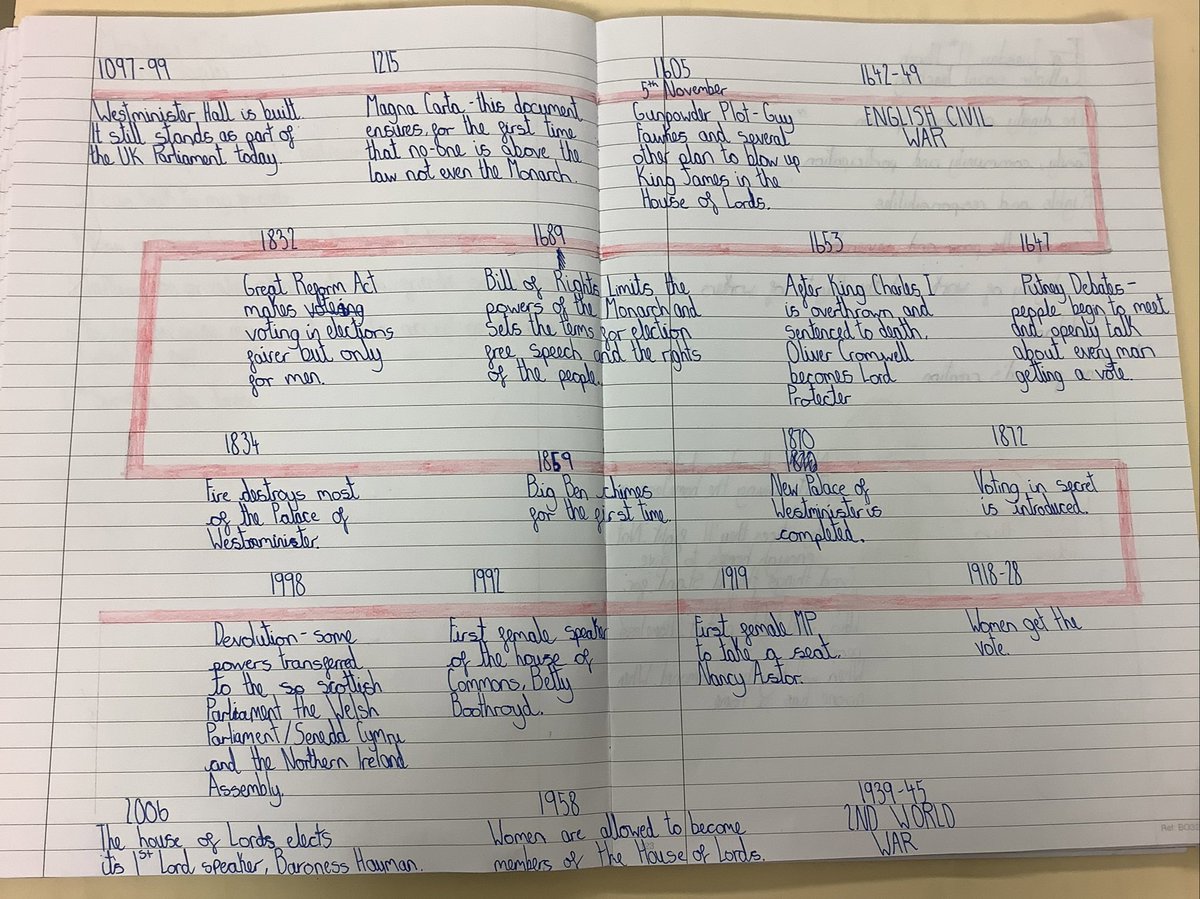 1097-99
Westminister Hall is built.
It still stands as part of
the UK Parliament today.
1215
Magna Carta - this document
ensures, for the first time
that no-one is above the
law not even the Monarch.
1605
5th November
Gunpowder Plot - Guy
Fawkes and several
other plan to blow up
King James in the
House of Lords.
1642-49
ENGLISH CIVIL
WAR
1647
Putney Debates -
people begin to meet
and openly talk
about every man
getting a vote.
1653
After King Charles I
is overthrown and
sentenced to death.
Oliver Cromwell
becomes Lord
Protecter
1689
Bill of Rights Limits the
powers of the Monarch and
Sets the terms for election
free speech and the rights
of the people.
1832
Great Reform Act
makes
voting in elections
fairer but only
for men.
1834
Fire destroys most
of the Palace of
Westminister.
1859
Big Ben chimes
for the first time.
1870
New Palace of
Westminister is
completed.
1872
Voting in secret
is introduced.
1918-28
Women get the
vote.
1919
First female MP
to take a seat.
Nancy Astor.
1992
First female speaker
of the house of
Commons, Betty
Boothroyd.
1998
Devolution - some
powers transferred
to the so scottish
Parliament the Welsh
Parliament/Senedd Cymru
and the Northern Ireland
Assembly.
2006
The house of Lords, elects
its 1st Lord speaker, Baroness Hayman.
1958
Women are allowed to become
members of the House of Lords.
1939-45
2ND WORLD
WAR